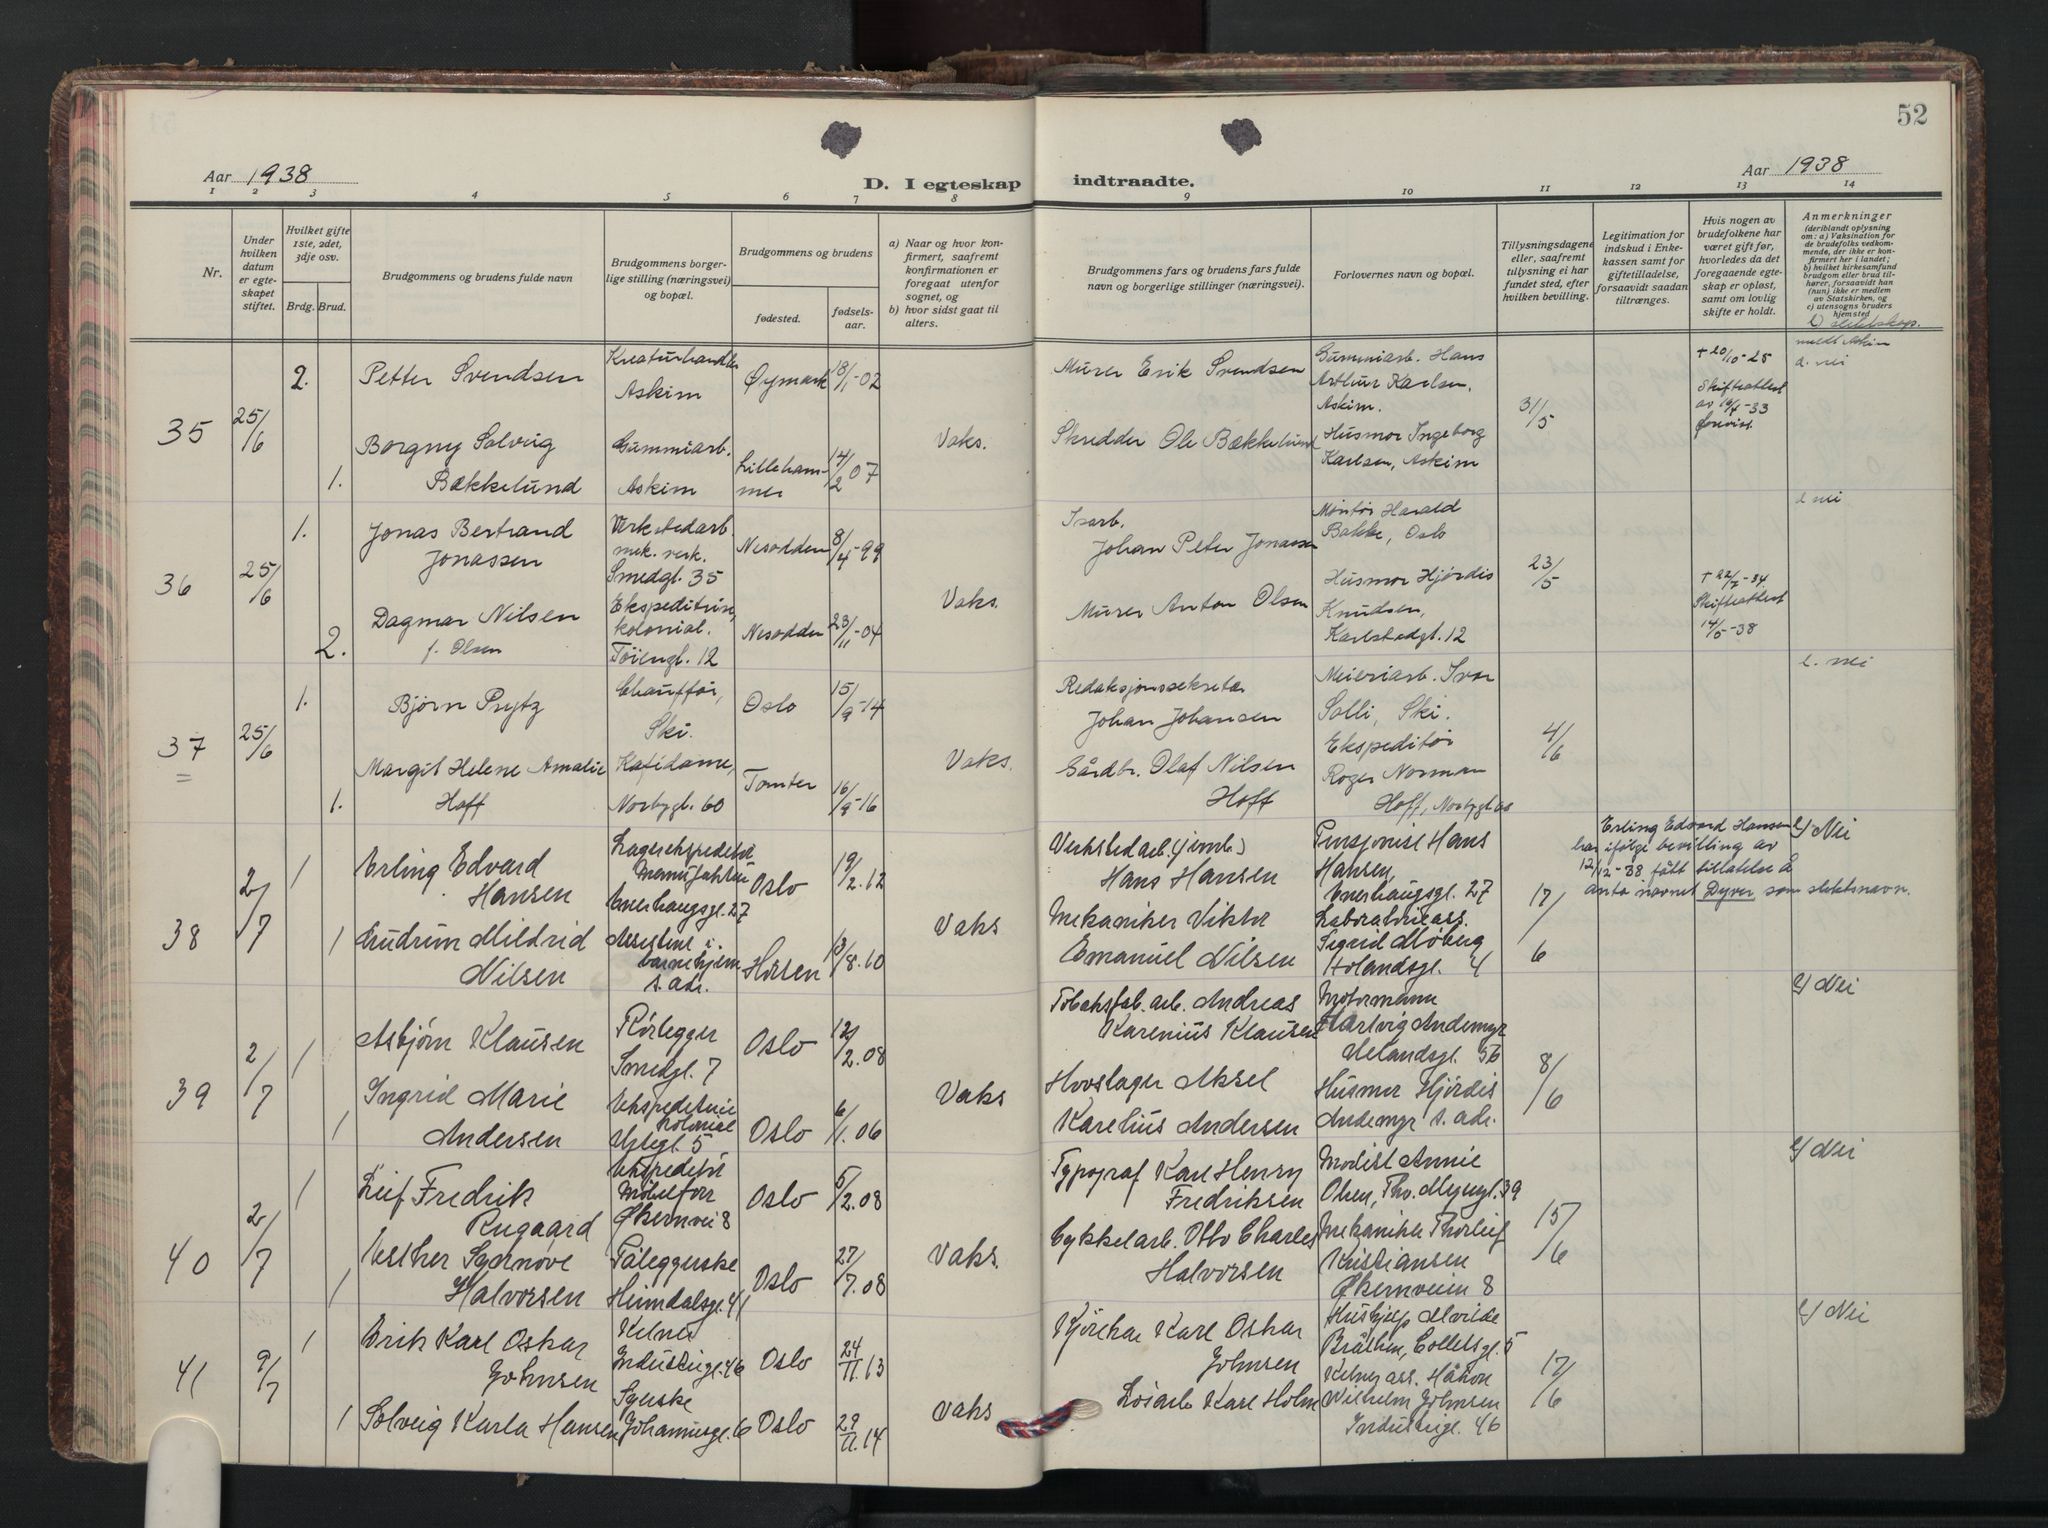 52
Aar 1938
D. I egteskap indtraadte.
Aar 1938
1 2 3 4 5 6 7 8 9 10 11 12 13 14
Nr.
Under hvilken datum er egteskapet stiftet.
Hvilket gifte 1ste, 2det, 3dje osv.
Brdg. Brud.
Brudgommens og brudens fulde navn
Brudgommens borgerlige stilling (næringsvei) og bopæl.
Brudgommens og brudens
fødested.
fødselsaar.
a) Naar og hvor konfirmert, saafremt konfirmationen er foregaat utenfor sognet, og
b) hvor sidst gaat til alters.
Brudgommens fars og brudens fars fulde navn og borgerlige stillinger (næringsvei).
Forlovernes navn og bopæl.
Tillysningsdagene eller, saafremt tillysning ei har fundet sted, efter hvilken bevilling.
Legitimation for indskud i Enkekassen samt for giftetilladelse, forsaavidt saadan tiltrænges.
Hvis nogen av brudefolkene har været gift før, hvorledes da det foregaaende egteskap er opløst, samt om lovlig skifte er holdt.
Anmerkninger
(deriblandt oplysning om: a) Vaksination for de brudefolks vedkommende, der ikke er konfirmert her i landet; b) hvilket kirkesamfund brudgom eller brud tilhører, forsaavidt han (hun) ikke er medlem av Statskirken, og c) utensogns bruders hjemsted
35
25/6
2.
Petter Svendsen
Kreaturhandler
Askim
Øymark
18/1-02
Murer Erik Svendsen
Gummiarb. Hans
Arthur Karlsen,
Askim.
31/5
+ 20/10-25
Skifteattest
meldt Askim
d. nei
1.
Borgny Solveig
Bækkelund
Gummiarb.
Askim
Lillehammer
14/2 07
Vaks.
Skredder Ole Bækkelund
Husmor Ingeborg
Karlsen, Askim
36
25/6
1.
Jonas Bertrand
Jonassen
Verkstedarb.
mek. verk.
Smedgt. 35
Nesodden
8/4-99
Isarb.
Johan Peter Jonassen
Montør Harald
Bakke, Oslo
23/5
+ 22/7-34
Skifteattest
14/5-38
d. nei
2.
Dagmar Nilsen
f. Olsen
Ekspeditrise,
kolonial.
Tøiengt. 12
Nesodden
23/11-04
Vaks.
Murer Anton Olsen
Husmor Hjørdis
Knudsen,
Karlstadgt. 12
37
25/6
1.
Bjørn Prytz
Chauffør,
Ski.
Oslo
15/9-14
Redaksjonssekretær
Johan Johansen
Meieriarb. Ivar
Solli, Ski.
4/6
d. nei
1.
Margit Helene Amalie
Hoff
Kafédame,
Norbygt. 60
Tomter
16/8-16
Vaks.
Gårdbr. Olaf Nilsen
Hoff
Ekspeditør
Roger Norman
Hoff, Norbygt. 60
38
2/7
1
Erling Edvard
Hansen
Lagerekspeditør
Manufaktur
Enerhaugsgt. 27
Oslo
19/2.12
Verkstedarb. (jernb)
Hans Hansen
Pensjonist Hans
Hansen,
Enerhaugsgt. 27
17/6
Erling Edvard Hansen
har ifølge bevilling av
12/12-38 fått tillatelse å
anta navnet Dyver som slektsnavn.
c/ Nei
1
Gudrun Mildrid
Nilsen
Assistent i
barnehjem
s. adr.
13/8.10
Vaks
Mekaniker Viktor
Emanuel Nilsen
Laboratorieass.
Sigrid Moberg
Holandsgt. 4
39
2/7
1
Asbjørn Klausen
Rørlegger
Smedgt. 7
Oslo
12/2.08
Tobaksfab. arb. Andreas
Karenius Klausen
Motormann
Hartvig Andemyr
Melandsgt. 56
8/6
c/ Nei
1
Ingrid Marie
Andersen
Ekspeditrise
kolonial
Oslo
6/1.06
Vaks
Hovslager Aksel
Karelius Andersen
Husmor Hjørdis
Andemyr s. adr.
40
2/7
1
Leif Fredrik
Rugaard
Ekspeditør
Møbelforr
Økernvei 8
Oslo
5/2.08
Typograf Karl Henry
Fredriksen
Modist Annie
Olsen, Tho. Meyergt. 39
15/6
c/ Nei
1
Esther Synnøve
Halvorsen
Påleggerske
Heimdalsgt. 41
Oslo
27/7.08
Vaks.
Cykkelarb. Otto Charles
Halvorsen
Mekaniker Thorleif
Kristiansen
Økernveien 8
41
9/7
1
Erik Karl Oskar
Johnsen
Kelner
Industrigt. 46
Oslo
24/11.13
Kjørekar Karl Oskar
Johnsen
Hushjelp Alvilde
Bråthen, Colletsgt. 5
17/6
c/ Nei
1
Solveig Karla Hansen
Syerske
Johannesgt. 6
Oslo
29/11.14
Vaks
Løsarb Karl Holm
Kelner ass. Håkon
Wilhelm Johnsen
Industrigt. 46